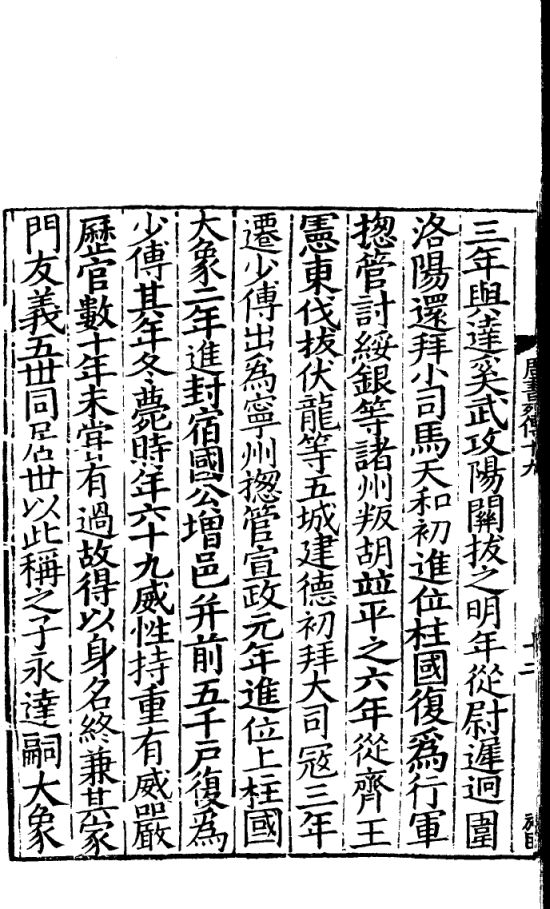 周書列傳十九
十二
三年與達奚武攻陽關拔之明年從尉遲迥圍
洛陽還拜小司馬天和初進位柱國復爲行軍
揔管討綏銀等諸州叛胡竝平之六年從齊王
憲東伐拔伏龍等五城建德初拜大司寇三年
遷少傅出爲寧州揔管宣政元年進位上柱國
大象二年進封宿國公增邑并前五千戶復爲
少傅其年冬薨時年六十九威性持重有威嚴
歷官數十年未嘗有過故得以身名終兼其家
門友義五世同居世以此稱之子永達嗣大象